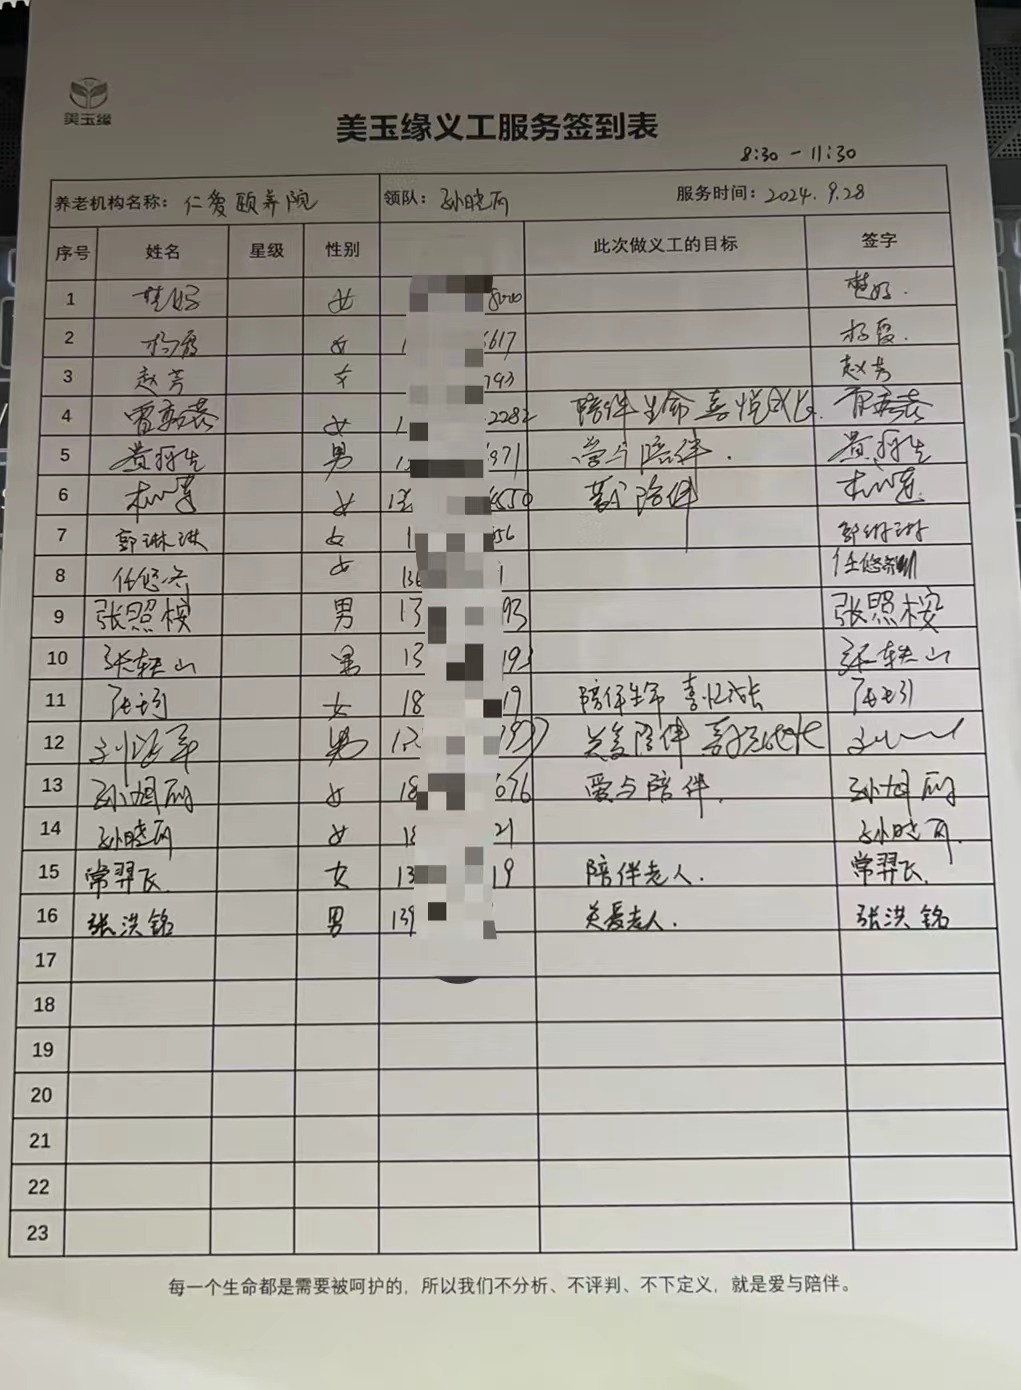 美玉缘
美玉缘义工服务签到表
8:30 - 11:30
养老机构名称: 仁爱颐养院 领队: 孙晓丽 服务时间: 2024.9.28
序号 姓名 星级 性别 此次做义工的目标 签字
1 楚好 女 楚好.
2 杨霞 女 1 6617 杨霞.
3 赵芳 女 793 赵芳
4 女 1 2282 陪伴生命喜悦成长.
5 男 971 爱与陪伴.
6 女 13 4550 陪伴
7 郭琳琳 女 1 56 郭琳琳
8 女 136 1
9 张照桉 男 13 93 张照桉
10 张轶山 男 13 193 张轶山
11 女 18 19 陪伴生命 喜悦成长
12 男 13 关爱陪伴 喜悦成长
13 孙旭丽 女 18 676 爱与陪伴. 孙旭丽
14 孙晓丽 女 21 孙晓丽.
15 常羿飞. 女 13 19 陪伴老人. 常羿飞.
16 张洪铭 男 139 关爱老人. 张洪铭
17
18
19
20
21
22
23
每一个生命都是需要被呵护的，所以我们不分析、不评判、不下定义，就是爱与陪伴。